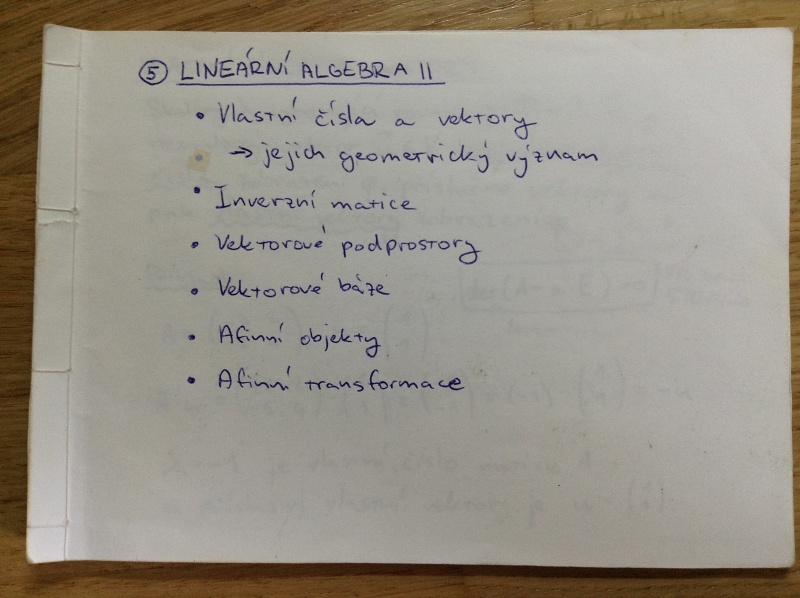 ⑤ LINEÁRNÍ ALGEBRA II
• Vlastní čísla a vektory
• → jejich geometrický význam
• Inverzní matice
• Vektorové podprostory
• Vektorové báze
• Afinní objekty
• Afinní transformace